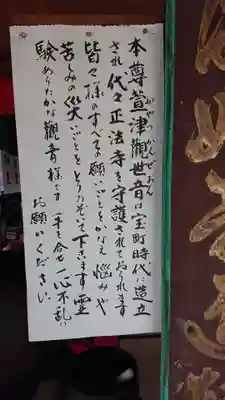 本尊萱津觀世音は室町時代に造立
かやつかんぜおん
され代々正法寺を守護されておられます
皆々様のすべての願いごとをかなえ悩みや
苦しみの災いごとをとりのぞいて下さいます 霊
験あらたかな觀音様です 手を合せ一心不乱に
お願いください